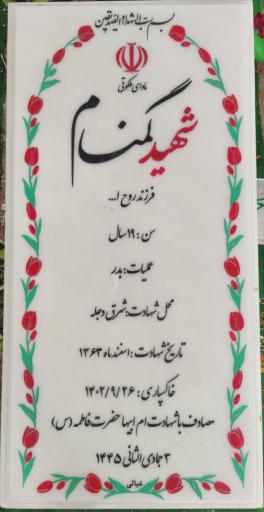 بسم رب الشهداء و الصدیقین
ماوای ملکوتی
شهید گمنام
فرزند روح ا...
سن : ۱۹ سال
عملیات : بدر
محل شهادت : شرق دجله
تاریخ شهادت : اسفند ماه ۱۳۶۳
خاکسپاری : ۱۴۰۲/۹/۲۶
مصادف با شهادت ام ابیها حضرت فاطمه (س)
۳ جمادی الثانی ۱۴۴۵